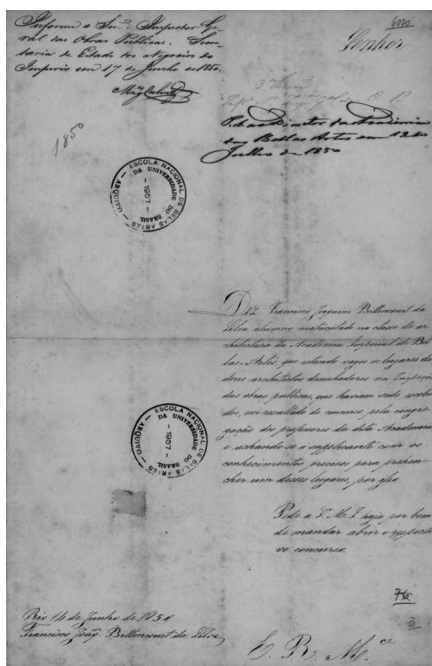 Informe o Snr. Inspector Ge-
ral das Obras Publicas. Secre-
taria de Estado dos Negocios do
Imperio em 17 de Junho de 1850.
6020
Senhor
1850
em 12 de
Julho de 1850
ESCOLA NACIONAL DE BELAS ARTES
DA UNIVERSIDADE DO BRASIL
- 1957 -
ARQUIVO
Diz Francisco Joaquim Bettencourt da
Silva, alumno matriculado na classe de ar-
chitectura da Academia Imperial de Bel-
las-Artes, que estando vagos os lugares de
dous architectos desenhadores na Inspecção
das obras publicas, que haviam sido
em resultado do concurso, pela congre-
gação dos professores da dita Academia
e achando-se o supplicante com os
conhecimentos precisos para preen-
cher um desses lugares, por isso
ESCOLA NACIONAL DE BELAS ARTES
DA UNIVERSIDADE DO BRASIL
- 1957 -
ARQUIVO
Pede a V. M. I. haja por bem
de mandar abrir o respecti-
vo concurso.
76
3
Rio 14 de Junho de 1850
Francisco Joaqm. Bettencourt da Silva
E. R. M.ce